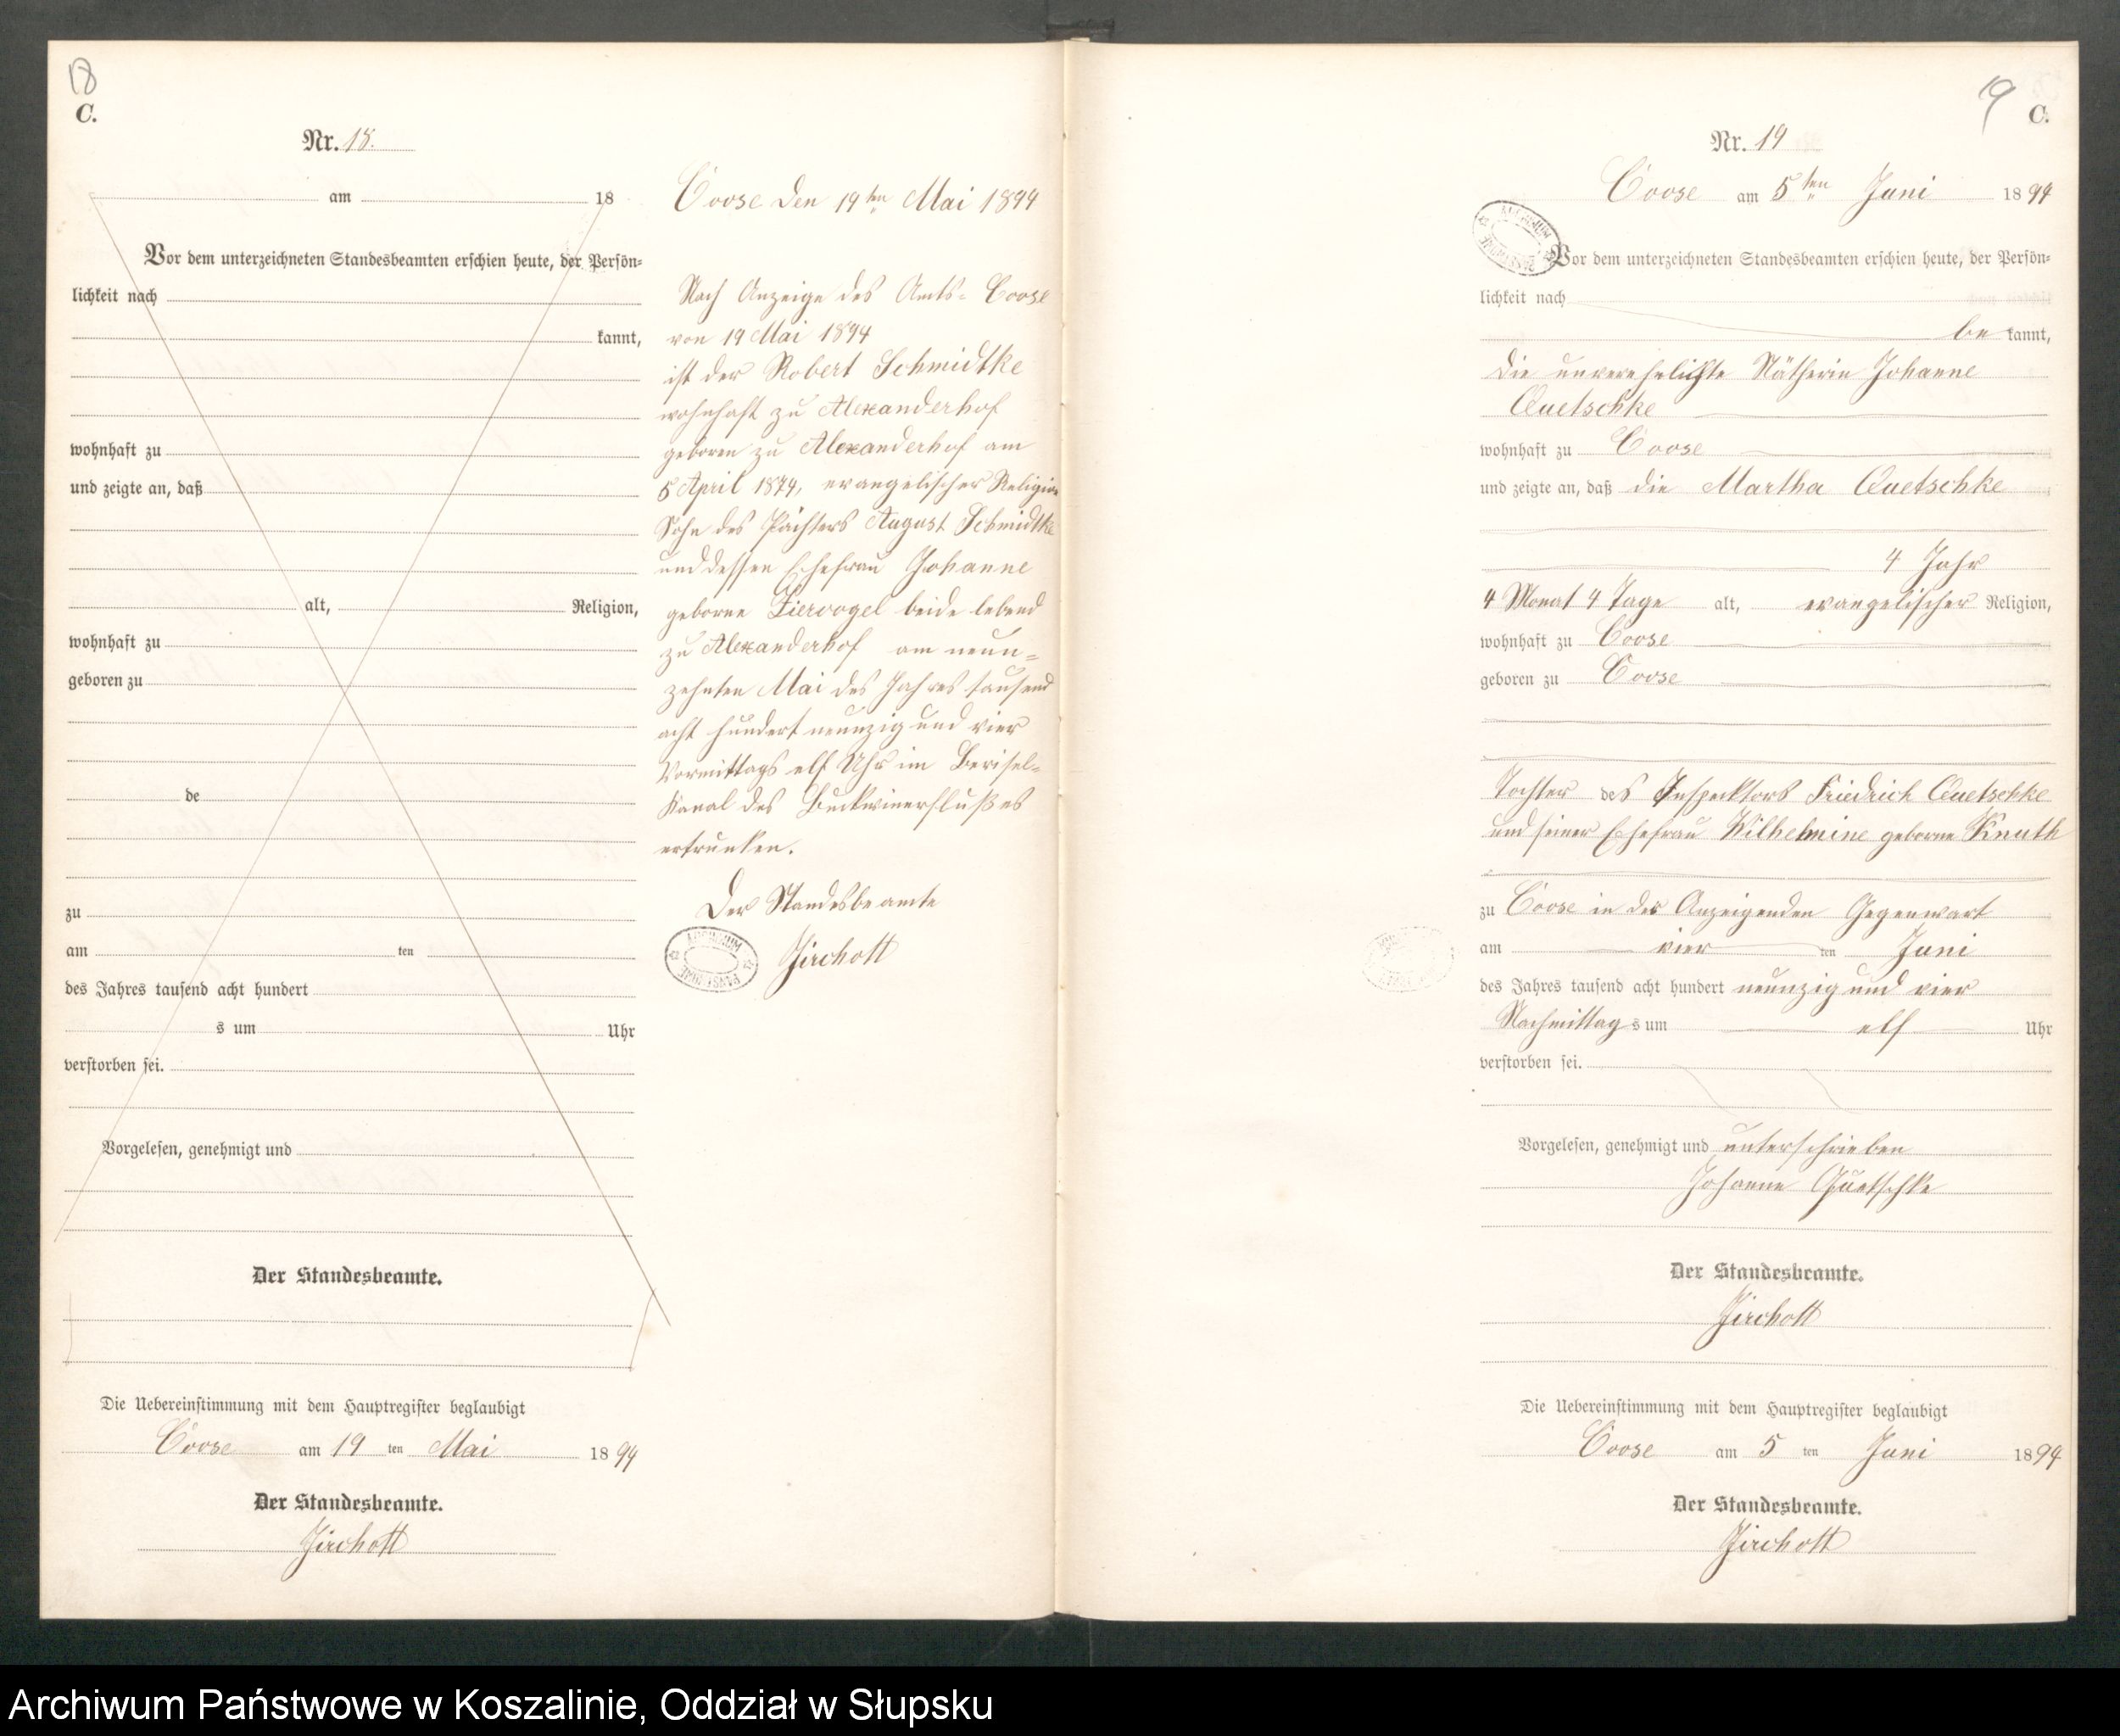 18
C.
Nr. 18.
am 18
Vor dem unterzeichneten Standesbeamten erschien heute, der Persön-
lichkeit nach
kannt,
wohnhaft zu
und zeigte an, daß
alt, Religion,
wohnhaft zu
geboren zu
de
zu
am ten
des Jahres tausend acht hundert
s um Uhr
verstorben sei.
Vorgelesen, genehmigt und
Der Standesbeamte.
Die Uebereinstimmung mit dem Hauptregister beglaubigt
Coose am 19 ten Mai 1894
Der Standesbeamte.
Zirchott
Coose den 19ten Mai 1894
Nach Anzeige des Amts- Coose
von 19 Mai 1894
ist der Robert Schmidtke
wohnhaft zu Alexanderhof
geboren zu Alexanderhof am
5 April 1874, evangelischer Religion
Sohn des Pächters August Schmidtke
und dessen Ehefrau Johanne
geborne Ziervogel beide lebend
zu Alexanderhof am neun-
zehnten Mai des Jahres tausend
acht hundert neunzig und vier
Vormittags elf Uhr im
Kanal des Buckwinerflußes
ertrunken.
Der Standesbeamte
Zirchott
19
C.
Nr. 19
Coose am 5ten Juni 1894
Vor dem unterzeichneten Standesbeamten erschien heute, der Persön-
lichkeit nach
be kannt,
die unverehelichte Nätherin Johanne
Quetschke
wohnhaft zu Coose
und zeigte an, daß die Martha Quetschke
4 Jahr
4 Monat 4 Tage alt, evangelischer Religion,
wohnhaft zu Coose
geboren zu Coose
Tochter des Inspecktors Friedrich Quetschke
und seiner Ehefrau Wilhelmine geborne Knuth
zu Coose in der Anzeigenden Gegenwart
am vier ten Juni
des Jahres tausend acht hundert neunzig und vier
Nachmittag s um elf Uhr
verstorben sei.
Vorgelesen, genehmigt und unterschrieben
Johanne Quetschke
Der Standesbeamte.
Zirchott
Die Uebereinstimmung mit dem Hauptregister beglaubigt
Coose am 5 ten Juni 1894
Der Standesbeamte.
Zirchott
Archiwum Państwowe w Koszalinie, Oddział w Słupsku